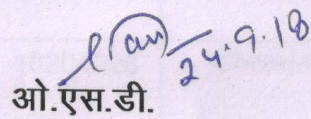 24.9.18
ओ.एस.डी.